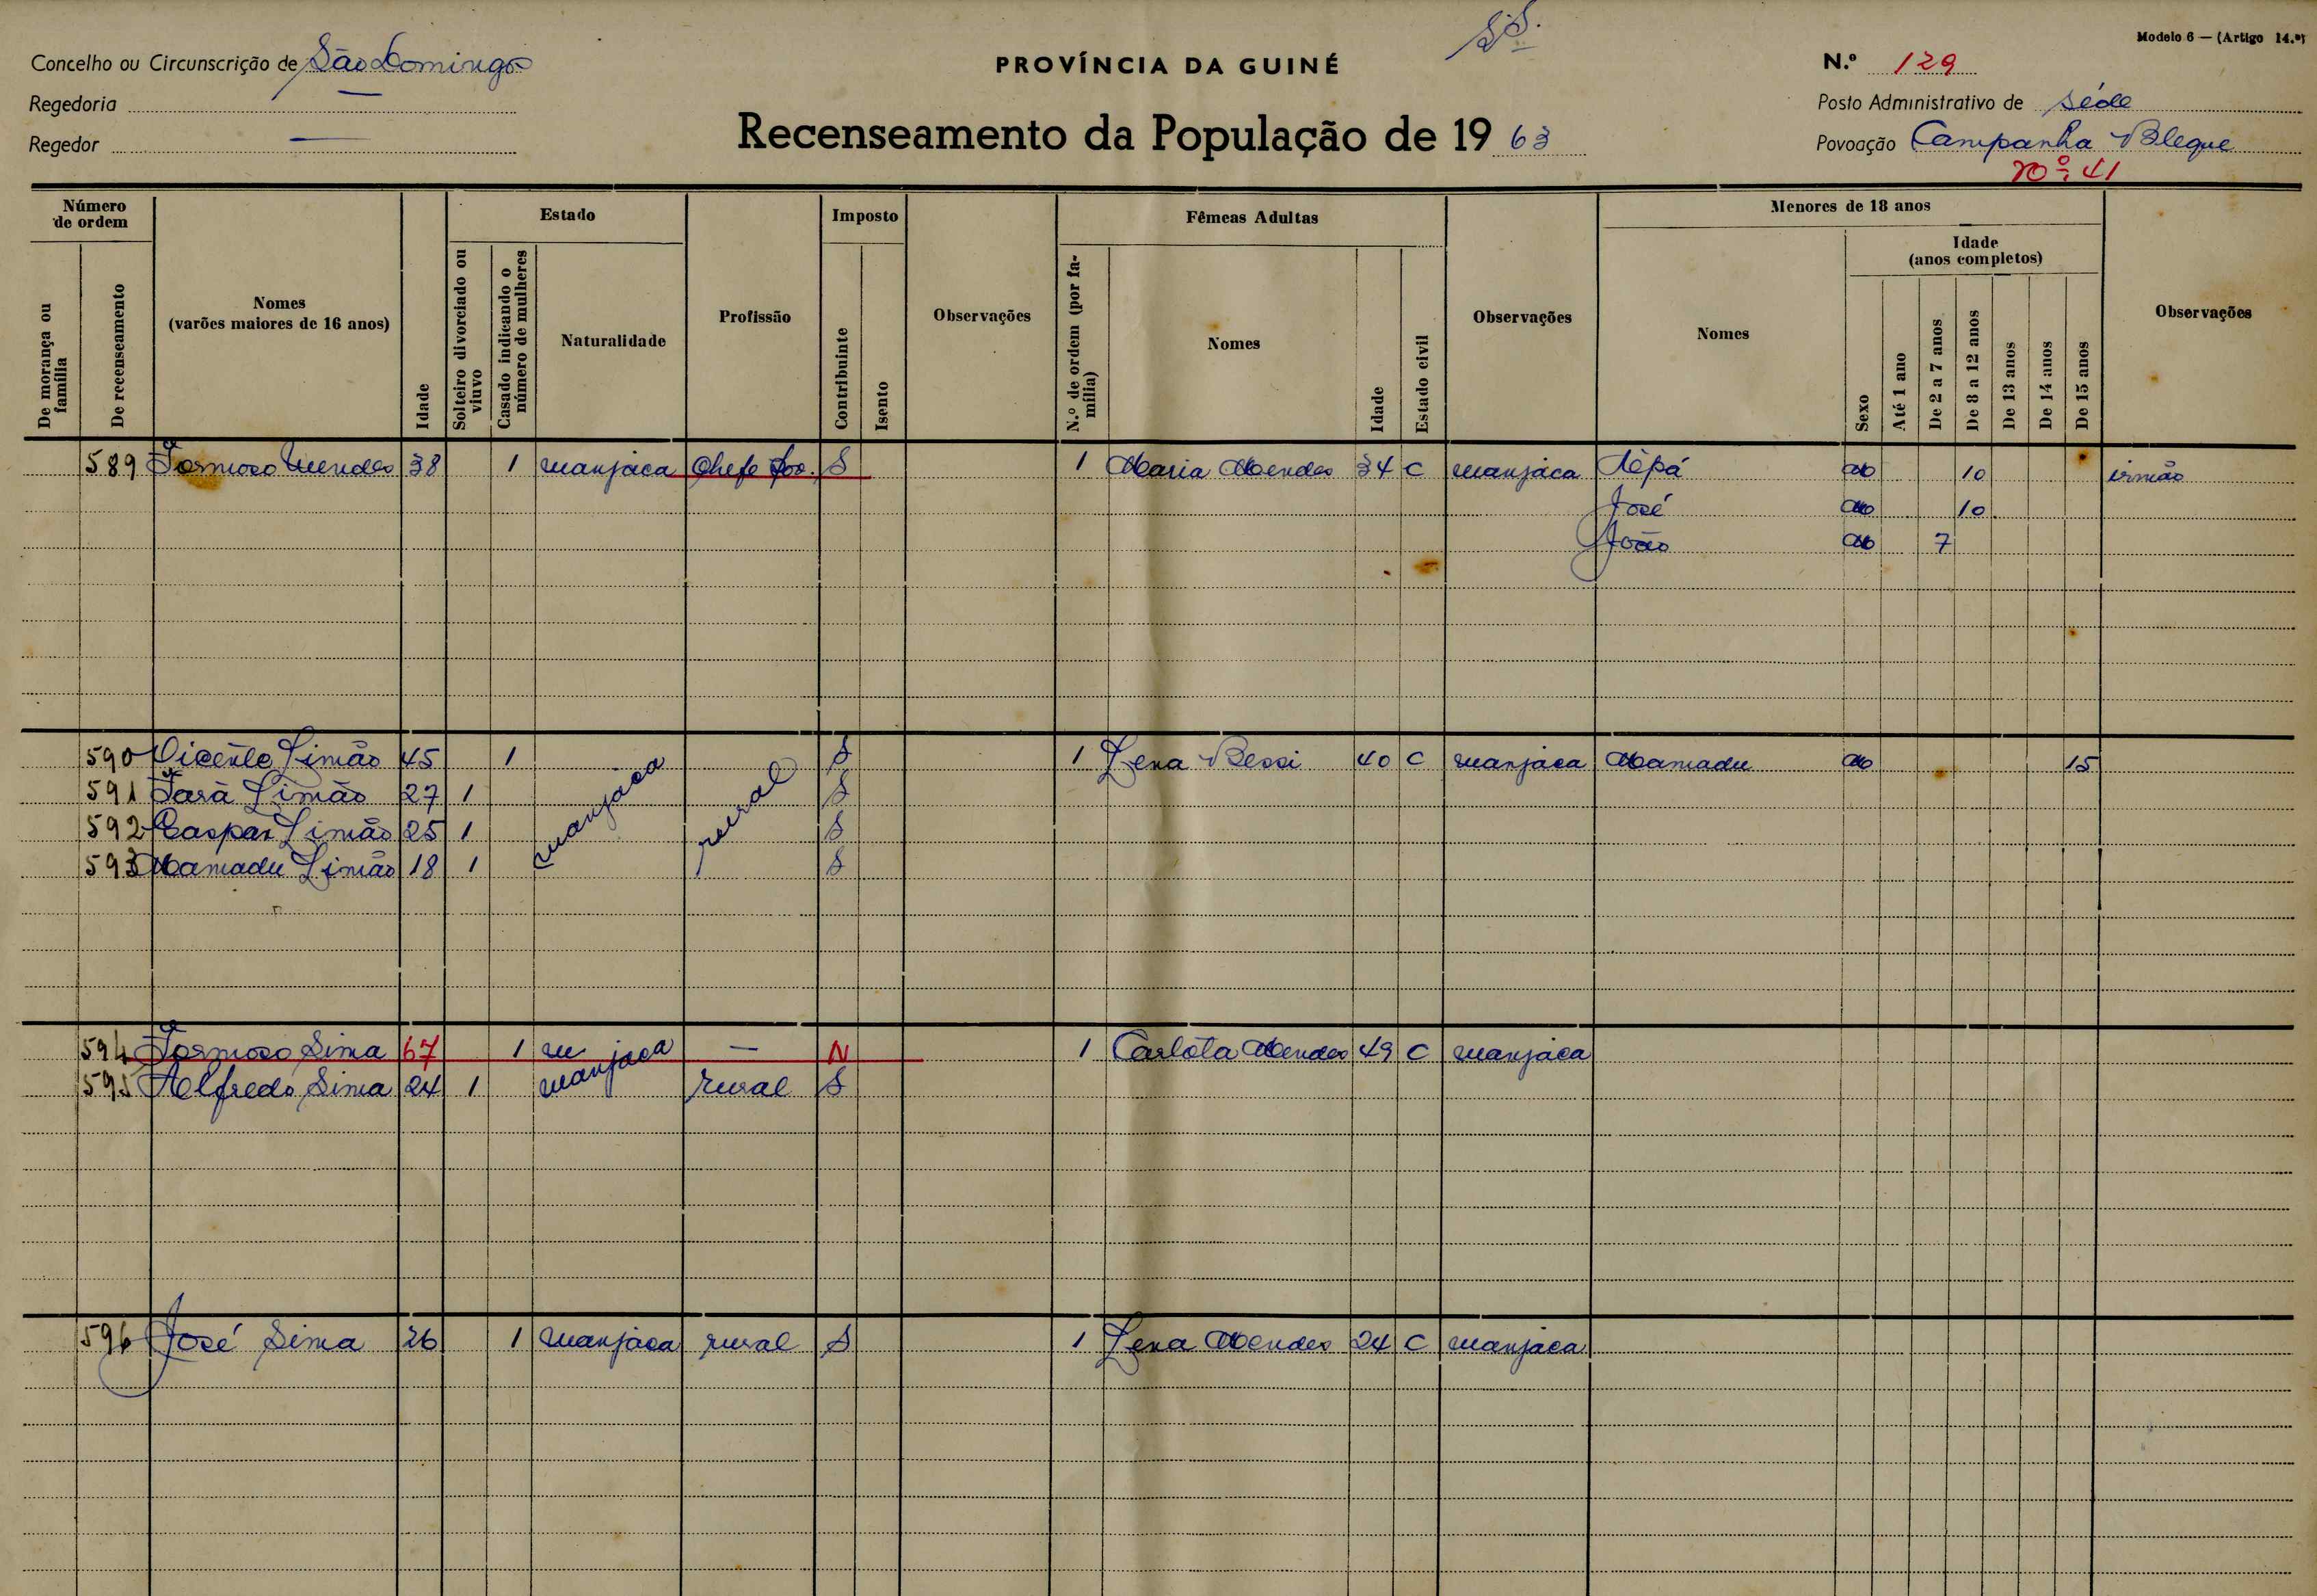 S.S.
Modelo 6 — (Artigo 14.º)
Concelho ou Circunscrição de São Domingos
PROVÍNCIA DA GUINÉ
N.º 129
Regedoria —
Posto Administrativo de Séde
Regedor —
Recenseamento da População de 19 63
Povoação Campanha Bleque
nº 41
Número de ordem
Estado
Imposto
Fêmeas Adultas
Menores de 18 anos
Idade (anos completos)
De morança ou família
De recenseamento
Nomes (varões maiores de 16 anos)
Idade
Solteiro divorciado ou viuvo
Casado indicando o número de mulheres
Naturalidade
Profissão
Contribuinte
Isento
Observações
N.º de ordem (por família)
Nomes
Idade
Estado civil
Observações
Nomes
Sexo
Até 1 ano
De 2 a 7 anos
De 8 a 12 anos
De 13 anos
De 14 anos
De 15 anos
Observações
589 Formoso Mendes 38 1 manjaca Chefe S 1 Maria Mendes 34 C manjaca m 10 irmão
José m 10
João m 7
590 Vicente Simão 45 1 manjaca rural S 1 Lena Bessi 40 C manjaca Mamadu m 15
591 Fará Simão 27 1 S
592 Gaspar Simão 25 1 S
593 Mamadu Simão 18 1 S
594 Formoso Sima 67 1 m — N 1 Carlota Mendes 49 C manjaca
595 Alfredo Sima 24 1 manjaca rural S
596 José Sima 26 1 manjaca rural S 1 Lena Mendes 24 C manjaca